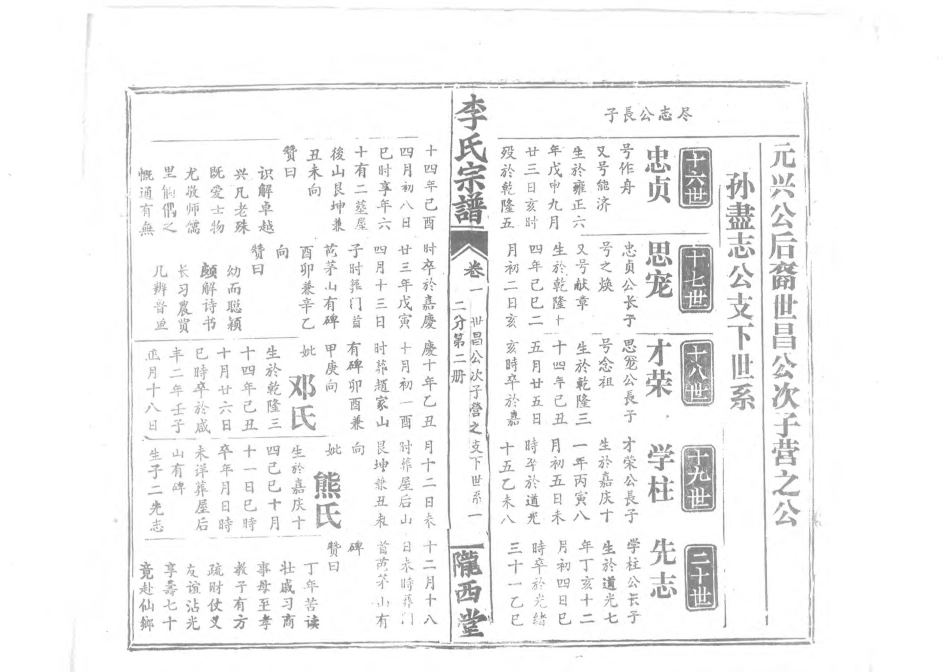 元兴公后裔世昌公次子营之公
孙盡志公支下世系
尽志公長子
十六世
忠贞
号作舟
又号能济
生於雍正六
年戊申九月
廿三日亥时
殁於乾隆五
十七世
思宠
忠贞公长子
号之焕
又号献章
生於乾隆十
四年己巳二
月初二日亥
十八世
才荣
思宠公長子
号念祖
生於乾隆三
十四年己丑
五月廿五日
亥時卒於嘉
十九世
学柱
才荣公長子
生於嘉庆十
一年丙寅八
月初五日未
時卒於道光
十五乙未八
二十世
先志
学柱公长子
生於道光七
年丁亥十二
月初四日巳
時卒於光緒
三十一乙巳
李氏宗譜
卷一
世昌公次子营之支下世系一
二分第二册
隴西堂
十四年己酉
四月初八日
巳时享年六
十有二墓屋
後山艮坤兼
丑未向
赞曰
识解卓越
兴凡老殊
既爱士物
尤敬师儒
慨通有無
时卒於嘉慶
廿三年戊寅
四月十三日
子时葬门首
茼茅山有碑
酉卯兼辛乙
向
赞曰
幼而聪颖
颇解诗书
长习農賞
慶十年乙丑
十月初一酉
时葬趙家山
有碑卯酉兼
甲庚向
妣
邓氏
生於乾隆三
十四年己丑
十月廿六日
巳時卒於咸
丰二年壬子
正月十八日
月十二日未
时葬屋后山
艮坤兼丑未
向
妣
熊氏
生於嘉庆十
四己巳十月
十一日巳時
卒年月日時
未详葬屋后
山有碑
生子二先志
十二月十八
日未時葬门
首茼茅山有
碑
赞曰
丁年苦读
壮歲习商
事母至孝
教子有方
疏财仗义
友谊沾光
享壽七十
竟赴仙鄉